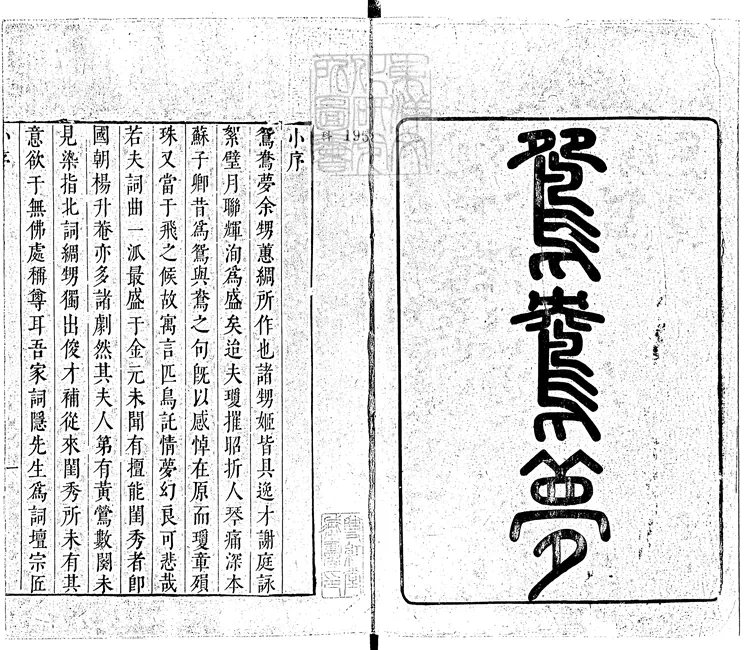 鴛鴦夢
小序
鴛鴦夢余甥蕙綢所作也諸甥姬皆具逸才謝庭詠
絮璧月聯輝洵爲盛矣迨夫瓊摧昭折人琴痛深本
蘇子卿昔爲鴛與鴦之句旣以感悼在原而瓊章殞
珠又當于飛之候故寓言匹鳥託情夢幻良可悲哉
若夫詞曲一派最盛于金元未聞有擅能閨秀者卽
國朝楊升菴亦多諸劇然其夫人第有黃鶯數闋未
見染指北詞綢甥獨出俊才補從來閨秀所未有其
意欲于無佛處稱尊耳吾家詞隱先生爲詞壇宗匠
小序
一